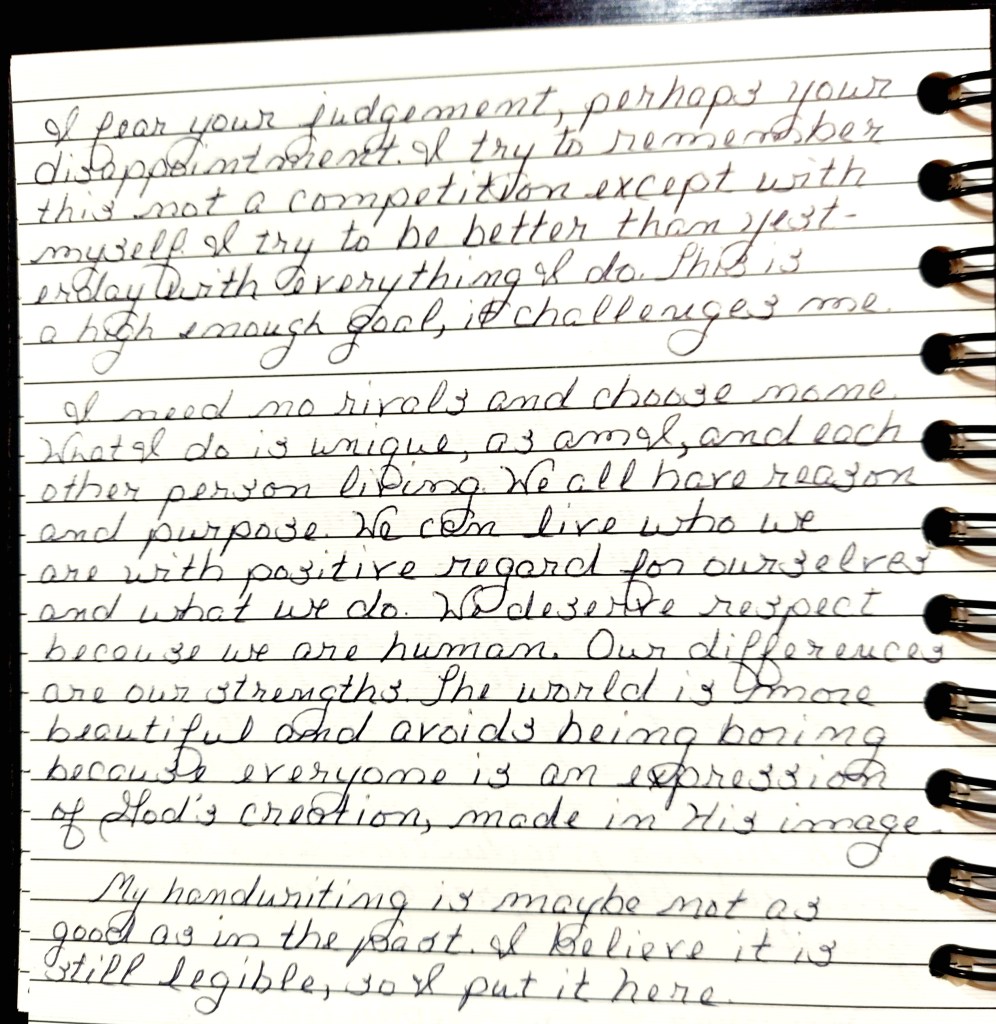 I fear your judgement, perhaps your
disappointment. I try to remember
this not a competition except with
myself. I try to be better than yest-
erday with everything I do. This is
a high enough goal, it challenges me.
I need no rivals and choose none.
What I do is unique, as am I, and each
other person living. We all have reason
and purpose. We can live who we
are with positive regard for ourselves
and what we do. We deserve respect
because we are human. Our differences
are our strengths. The world is more
beautiful and avoids being boring
because everyone is an expression
of God's creation, made in His image.
My handwriting is maybe not as
good as in the past. I believe it is
still legible, so I put it here.